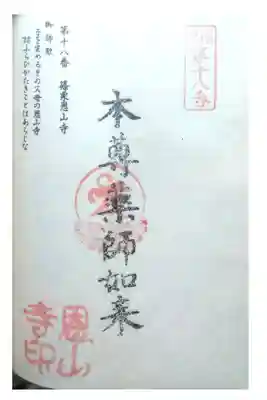 第十八番
第十八番 篠栗恩山寺
御詠歌
子を産めるその父母の恩山寺
訪ふらひがたきことはあらじな
本尊薬師如来
恩山
寺印